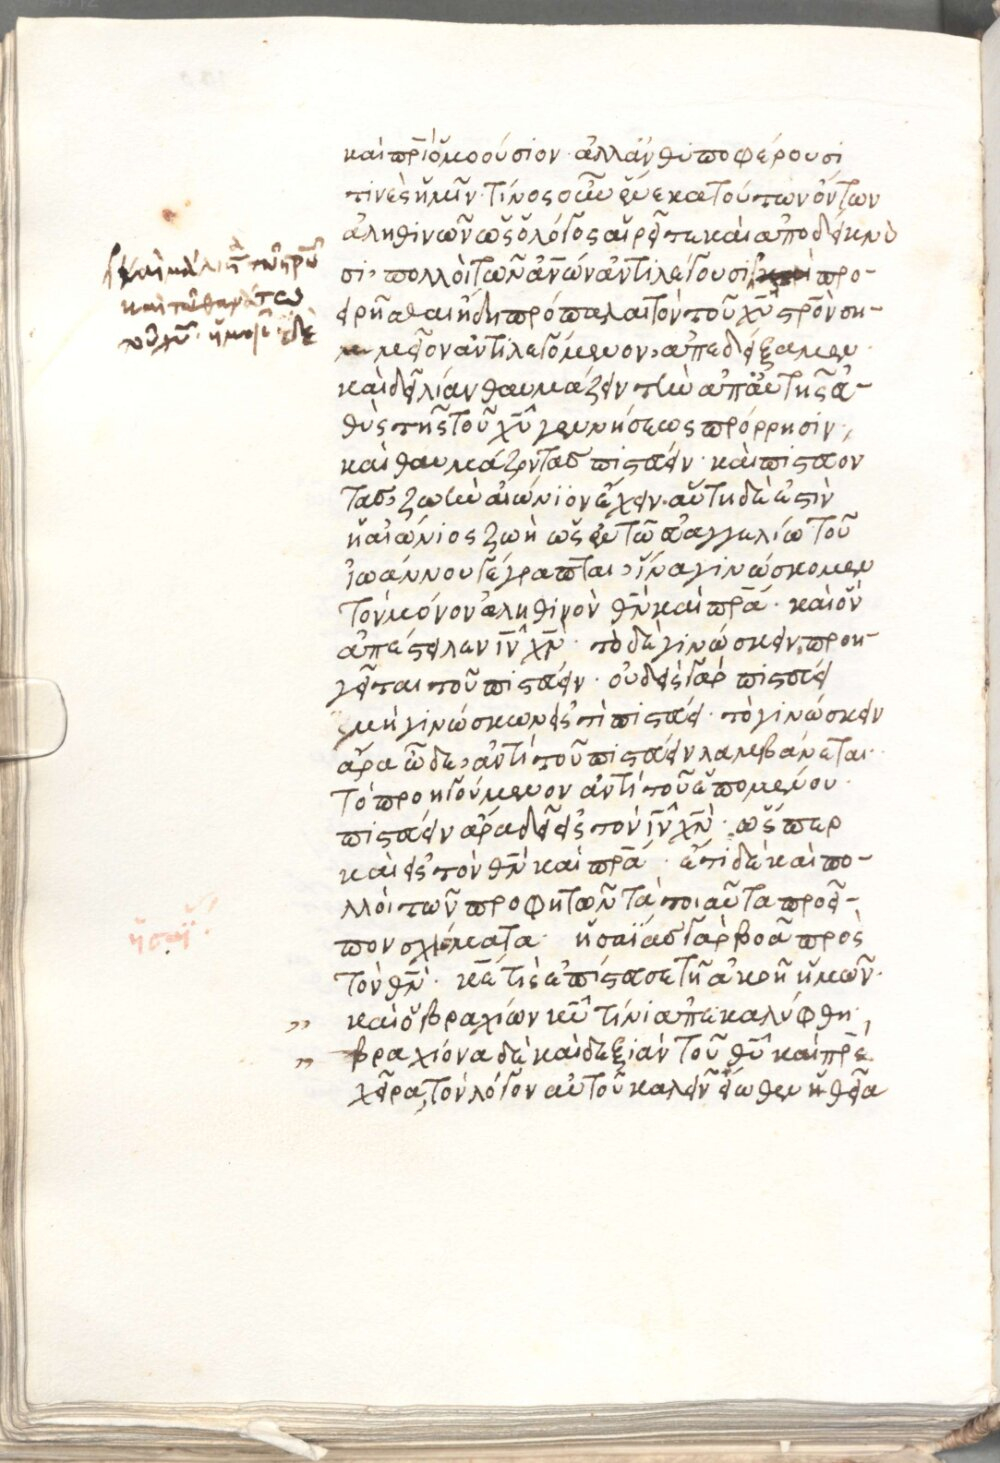 καὶ πρὶ ὁμοούσιον· ἀλλ' ἀνθυποφέρουσί
τινες ἡμῖν· τίνος οὖν ἕνεκα τούτων ὄντων
ἀληθινῶν ὡς ὁ λόγος αἱρεῖ τε καὶ ἀποδείκνυ
σι, πολλοὶ τῶν ἀνων ἀντιλέγουσι προ-
ειρῆσθαι ἤδη πρόπαλαι τὸν τοῦ χυ στρὸν ση-
μεῖον ἀντιλεγόμενον, ἀπεδείξαμεν·
καὶ δεῖ λίαν θαυμάζειν τὴν ἀπ' αὐτῆς εὐ-
θὺς τῆς τοῦ χυ γεννήσεως πρόρρησιν·
καὶ θαυμάζοντας πιστεύειν· καὶ πιστεύον
τας, ζωὴν αἰώνιον ἔχειν· αὕτη δὲ ἐστὶν
ἡ αἰώνιος ζωὴ ὡς ἐν τῷ εὐαγγελίω τοῦ
ἰωάννου γέγραπται, ἵνα γινώσκομεν
τὸν μόνον ἀληθινὸν θν καὶ πρα· καὶ ὃν
ἀπέστειλεν ιν χν· τὸ δὲ γινώσκειν, προη-
γεῖται τοῦ πιστεύειν· οὐδεὶς γὰρ πιστεύει
μὴ γινώσκων εἰς τί πιστεύει· τὸ γινώσκειν
ἄρα ὧδε, ἀντὶ τοῦ πιστεύειν λαμβάνεται·
τὸ προηγούμενον ἀντὶ τοῦ ἑπομένου·
πιστεύειν ἄρα δεῖ εἰς τὸν ιν χν· ὥσπερ
καὶ εἰς τὸν θν καὶ πρα· ἐπεὶ δὲ καὶ πο-
λλοὶ τῶν προφητῶν τὰ τοιαῦτα προεῖ-
πον σχήματα· ἡσαΐας γὰρ βοᾶ πρὸς
τὸν θν· κε τίς ἐπίστευσε τῇ ἀκοῇ ἡμῶν·
καὶ ὁ βραχίων κυ τίνι ἀπεκαλύφθη·
βραχίονα δὲ καὶ δεξιὰν τοῦ θυ καὶ πρς
χεῖρα, τὸν λόγον αὐτοῦ καλεῖν εἴωθεν ἡ θεία
καὶ τῶ θανάτω
ἡσαΐ